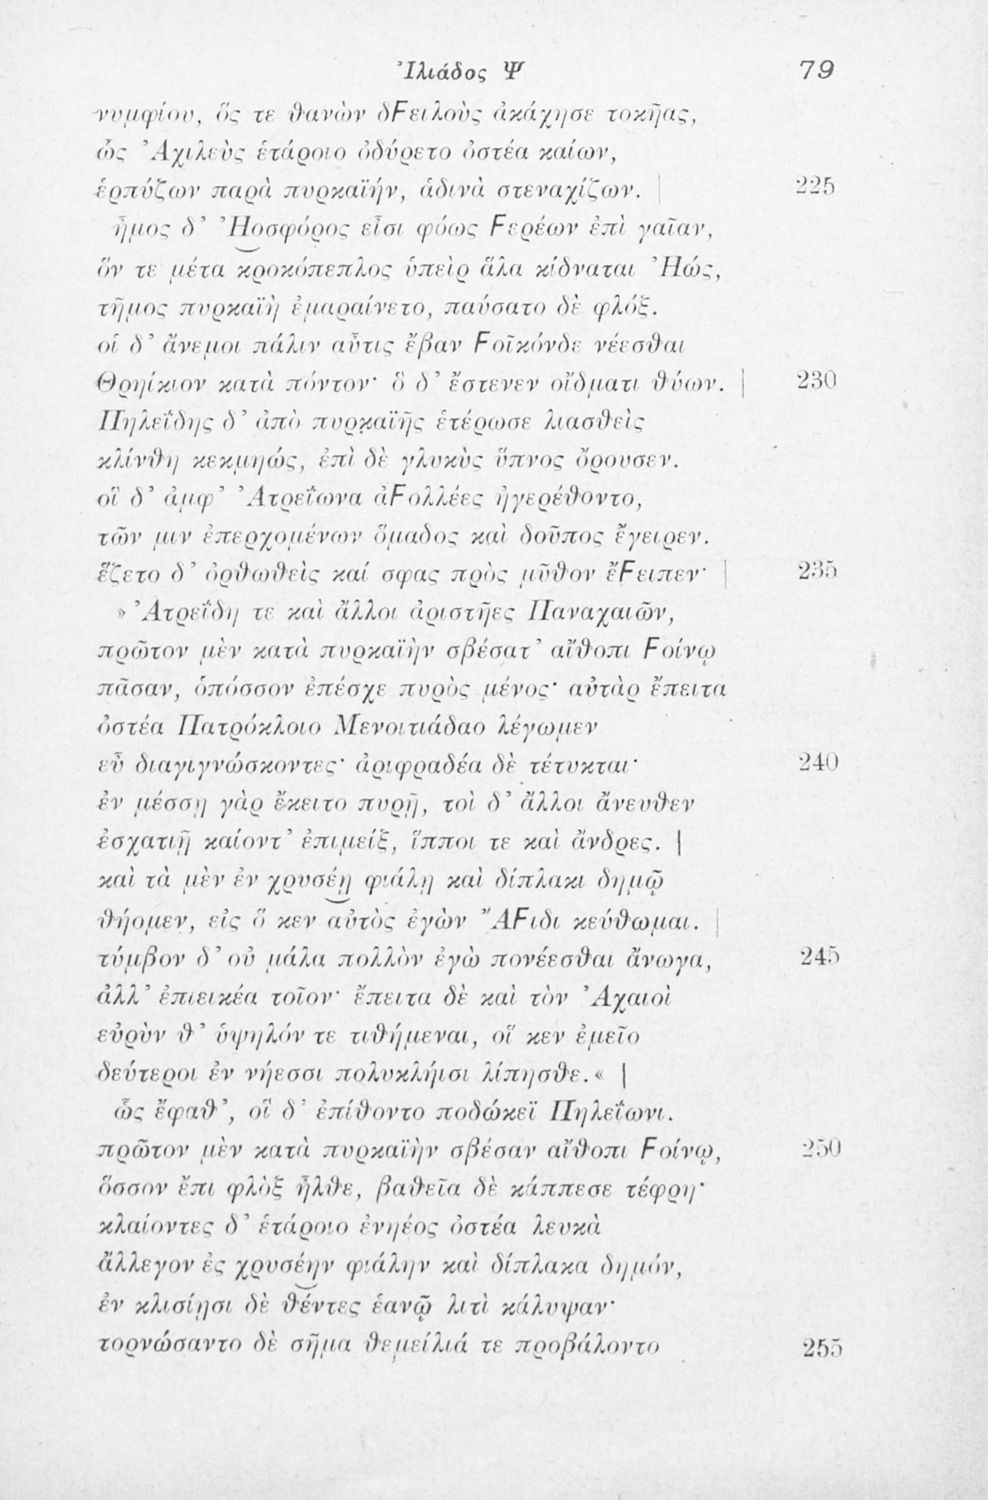 Ἰλιάδος Ψ 79
νυμφίου, ὅς τε θανὼν δϜειλοὺς ἀκάχησε τοκῆας,
ὣς Ἀχιλεὺς ἑτάροιο ὀδύρετο ὀστέα καίων,
ἑρπύζων παρὰ πυρκαϊήν, ἁδινὰ στεναχίζων. | 225
ἦμος δ’ Ἠοσφόρος εἶσι φόως Ϝερέων ἐπὶ γαῖαν,
ὅν τε μέτα κροκόπεπλος ὑπεὶρ ἅλα κίδναται Ἠώς,
τῆμος πυρκαϊὴ ἐμαραίνετο, παύσατο δὲ φλόξ.
οἱ δ’ ἄνεμοι πάλιν αὖτις ἔβαν Ϝοῖκόνδε νέεσθαι
Θρηίκιον κατὰ πόντον· ὃ δ’ ἔστενεν οἴδματι θύων. | 230
Πηλεΐδης δ’ ἀπὸ πυρκαϊῆς ἑτέρωσε λιασθεὶς
κλίνθη κεκμηώς, ἐπὶ δὲ γλυκὺς ὕπνος ὄρουσεν.
οἳ δ’ ἀμφ’ Ἀτρεΐωνα ἀϜολλέες ἠγερέθοντο,
τῶν μιν ἐπερχομένων ὅμαδος καὶ δοῦπος ἔγειρεν.
ἕζετο δ’ ὀρθωθεὶς καί σφας πρὸς μῦθον ἔϜειπεν· | 235
» Ἀτρεΐδη τε καὶ ἄλλοι ἀριστῆες Παναχαιῶν,
πρῶτον μὲν κατὰ πυρκαϊὴν σβέσατ’ αἴθοπι Ϝοίνῳ
πᾶσαν, ὁπόσσον ἐπέσχε πυρὸς μένος· αὐτὰρ ἔπειτα
ὀστέα Πατρόκλοιο Μενοιτιάδαο λέγωμεν
εὖ διαγιγνώσκοντες· ἀριφραδέα δὲ τέτυκται· 240
ἐν μέσσῃ γὰρ ἔκειτο πυρῇ, τοὶ δ’ ἄλλοι ἄνευθεν
ἐσχατιῇ καίοντ’ ἐπιμείξ, ἵπποι τε καὶ ἄνδρες. |
καὶ τὰ μὲν ἐν χρυσέῃ φιάλῃ καὶ δίπλακι δημῷ
θήομεν, εἰς ὅ κεν αὐτὸς ἐγὼν ἌϜιδι κεύθωμαι. |
τύμβον δ’ οὐ μάλα πολλὸν ἐγὼ πονέεσθαι ἄνωγα, 245
ἀλλ’ ἐπιεικέα τοῖον· ἔπειτα δὲ καὶ τὸν Ἀχαιοὶ
εὐρὺν θ’ ὑψηλόν τε τιθήμεναι, οἵ κεν ἐμεῖο
δεύτεροι ἐν νήεσσι πολυκλήισι λίπησθε.« |
ὣς ἔφαθ’, οἳ δ’ ἐπίθοντο ποδώκεϊ Πηλεΐωνι.
πρῶτον μὲν κατὰ πυρκαϊὴν σβέσαν αἴθοπι Ϝοίνῳ, 250
ὅσσον ἔπι φλὸξ ἦλθε, βαθεῖα δὲ κάππεσε τέφρη·
κλαίοντες δ’ ἑτάροιο ἐνηέος ὀστέα λευκὰ
ἄλλεγον ἐς χρυσέην φιάλην καὶ δίπλακα δημόν,
ἐν κλισίῃσι δὲ θέντες ἑανῷ λιτὶ κάλυψαν·
τορνώσαντο δὲ σῆμα θεμείλιά τε προβάλοντο 255